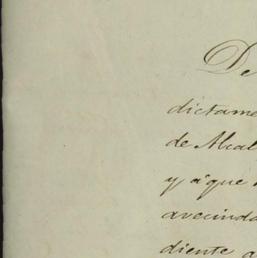 De
dictame
de Alcal
y á que
avecinda
diente